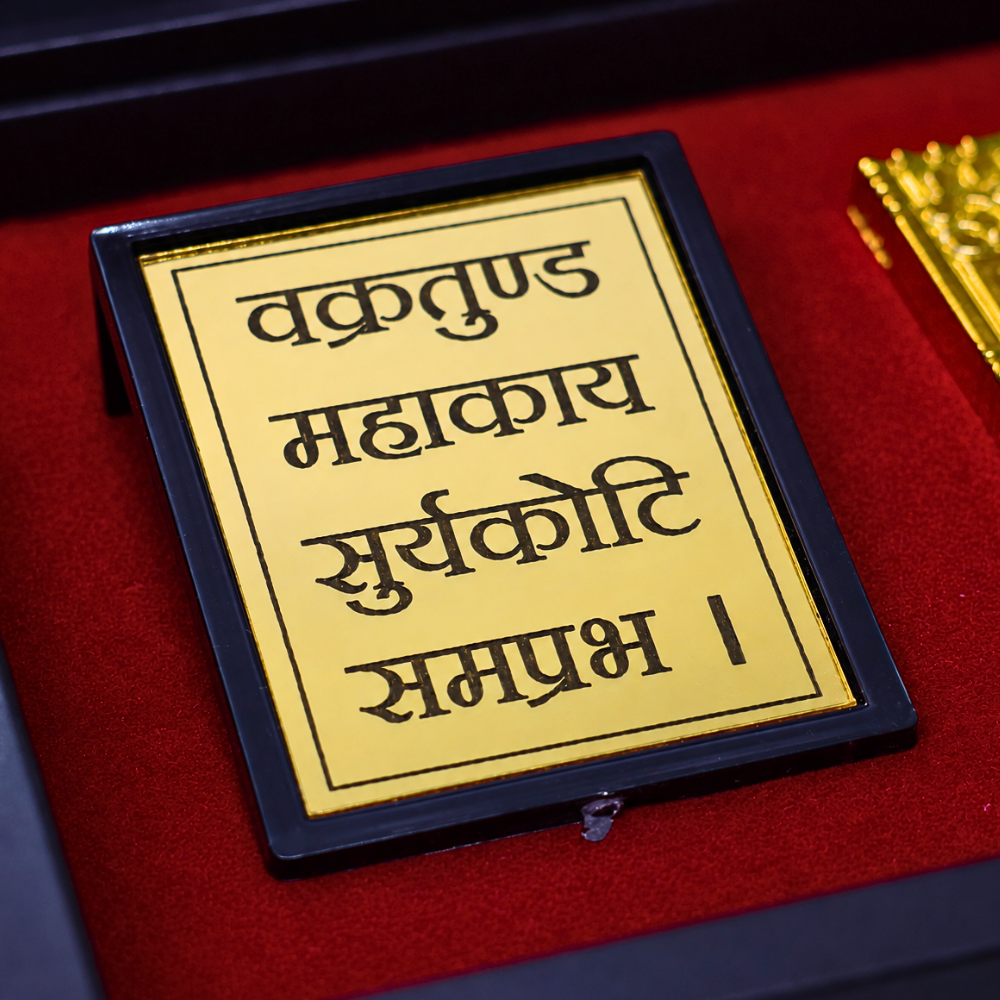 वक्रतुण्ड
महाकाय
सुर्यकोटि
समप्रभ ।